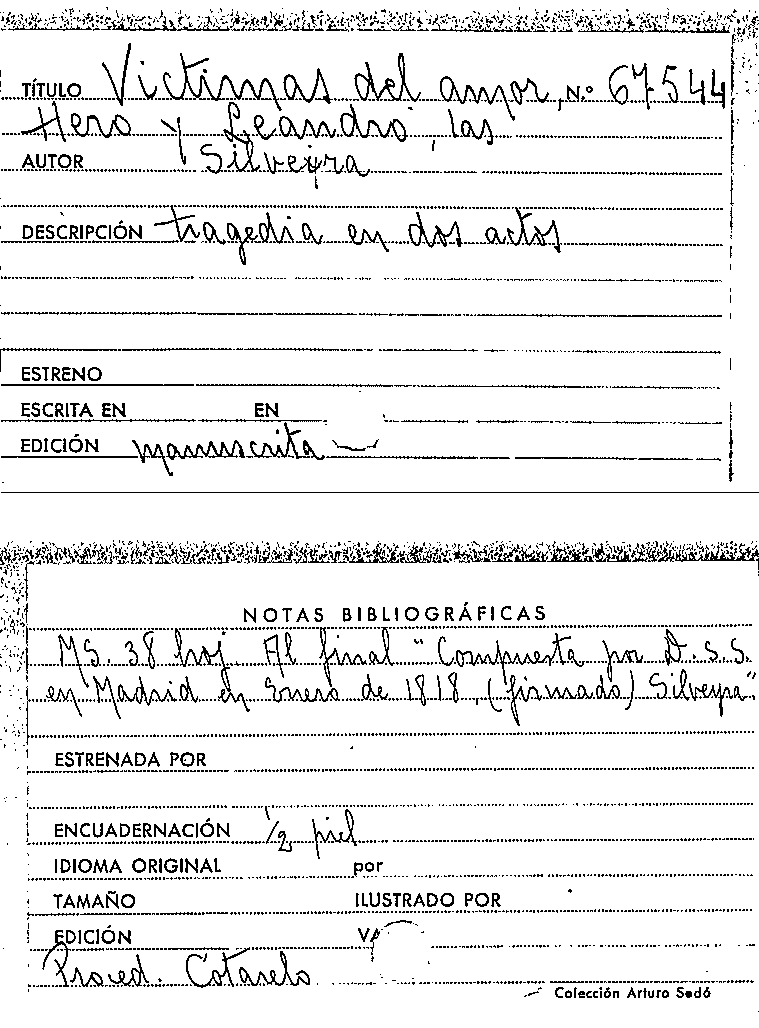 TÍTULO Victimas del amor, N.º 67544
Hero y Leandro, las
AUTOR Silveyra
DESCRIPCIÓN tragedia en dos actos
ESTRENO
ESCRITA EN EN
EDICIÓN manuscrita
NOTAS BIBLIOGRÁFICAS
MS. 38 hoj. Al final "Compuesta por D.S.S.
en Madrid en Enero de 1818, (firmado) Silveyra".
ESTRENADA POR
ENCUADERNACIÓN 1/2 piel
IDIOMA ORIGINAL por
TAMAÑO ILUSTRADO POR
EDICIÓN
Proced. Cotarelo
Colección Arturo Sedó